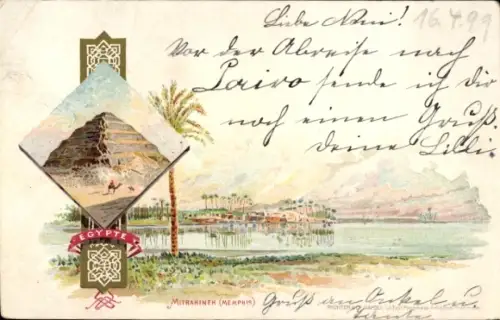 Liebe Nini!
16.4.99
Vor der Abreise nach
Cairo sende ich dir
noch einen Gruß
deine Lilli.
EGYPTE
MITRAHINEH (MEMPHIS)
Gruß an Onkel u.
Tante